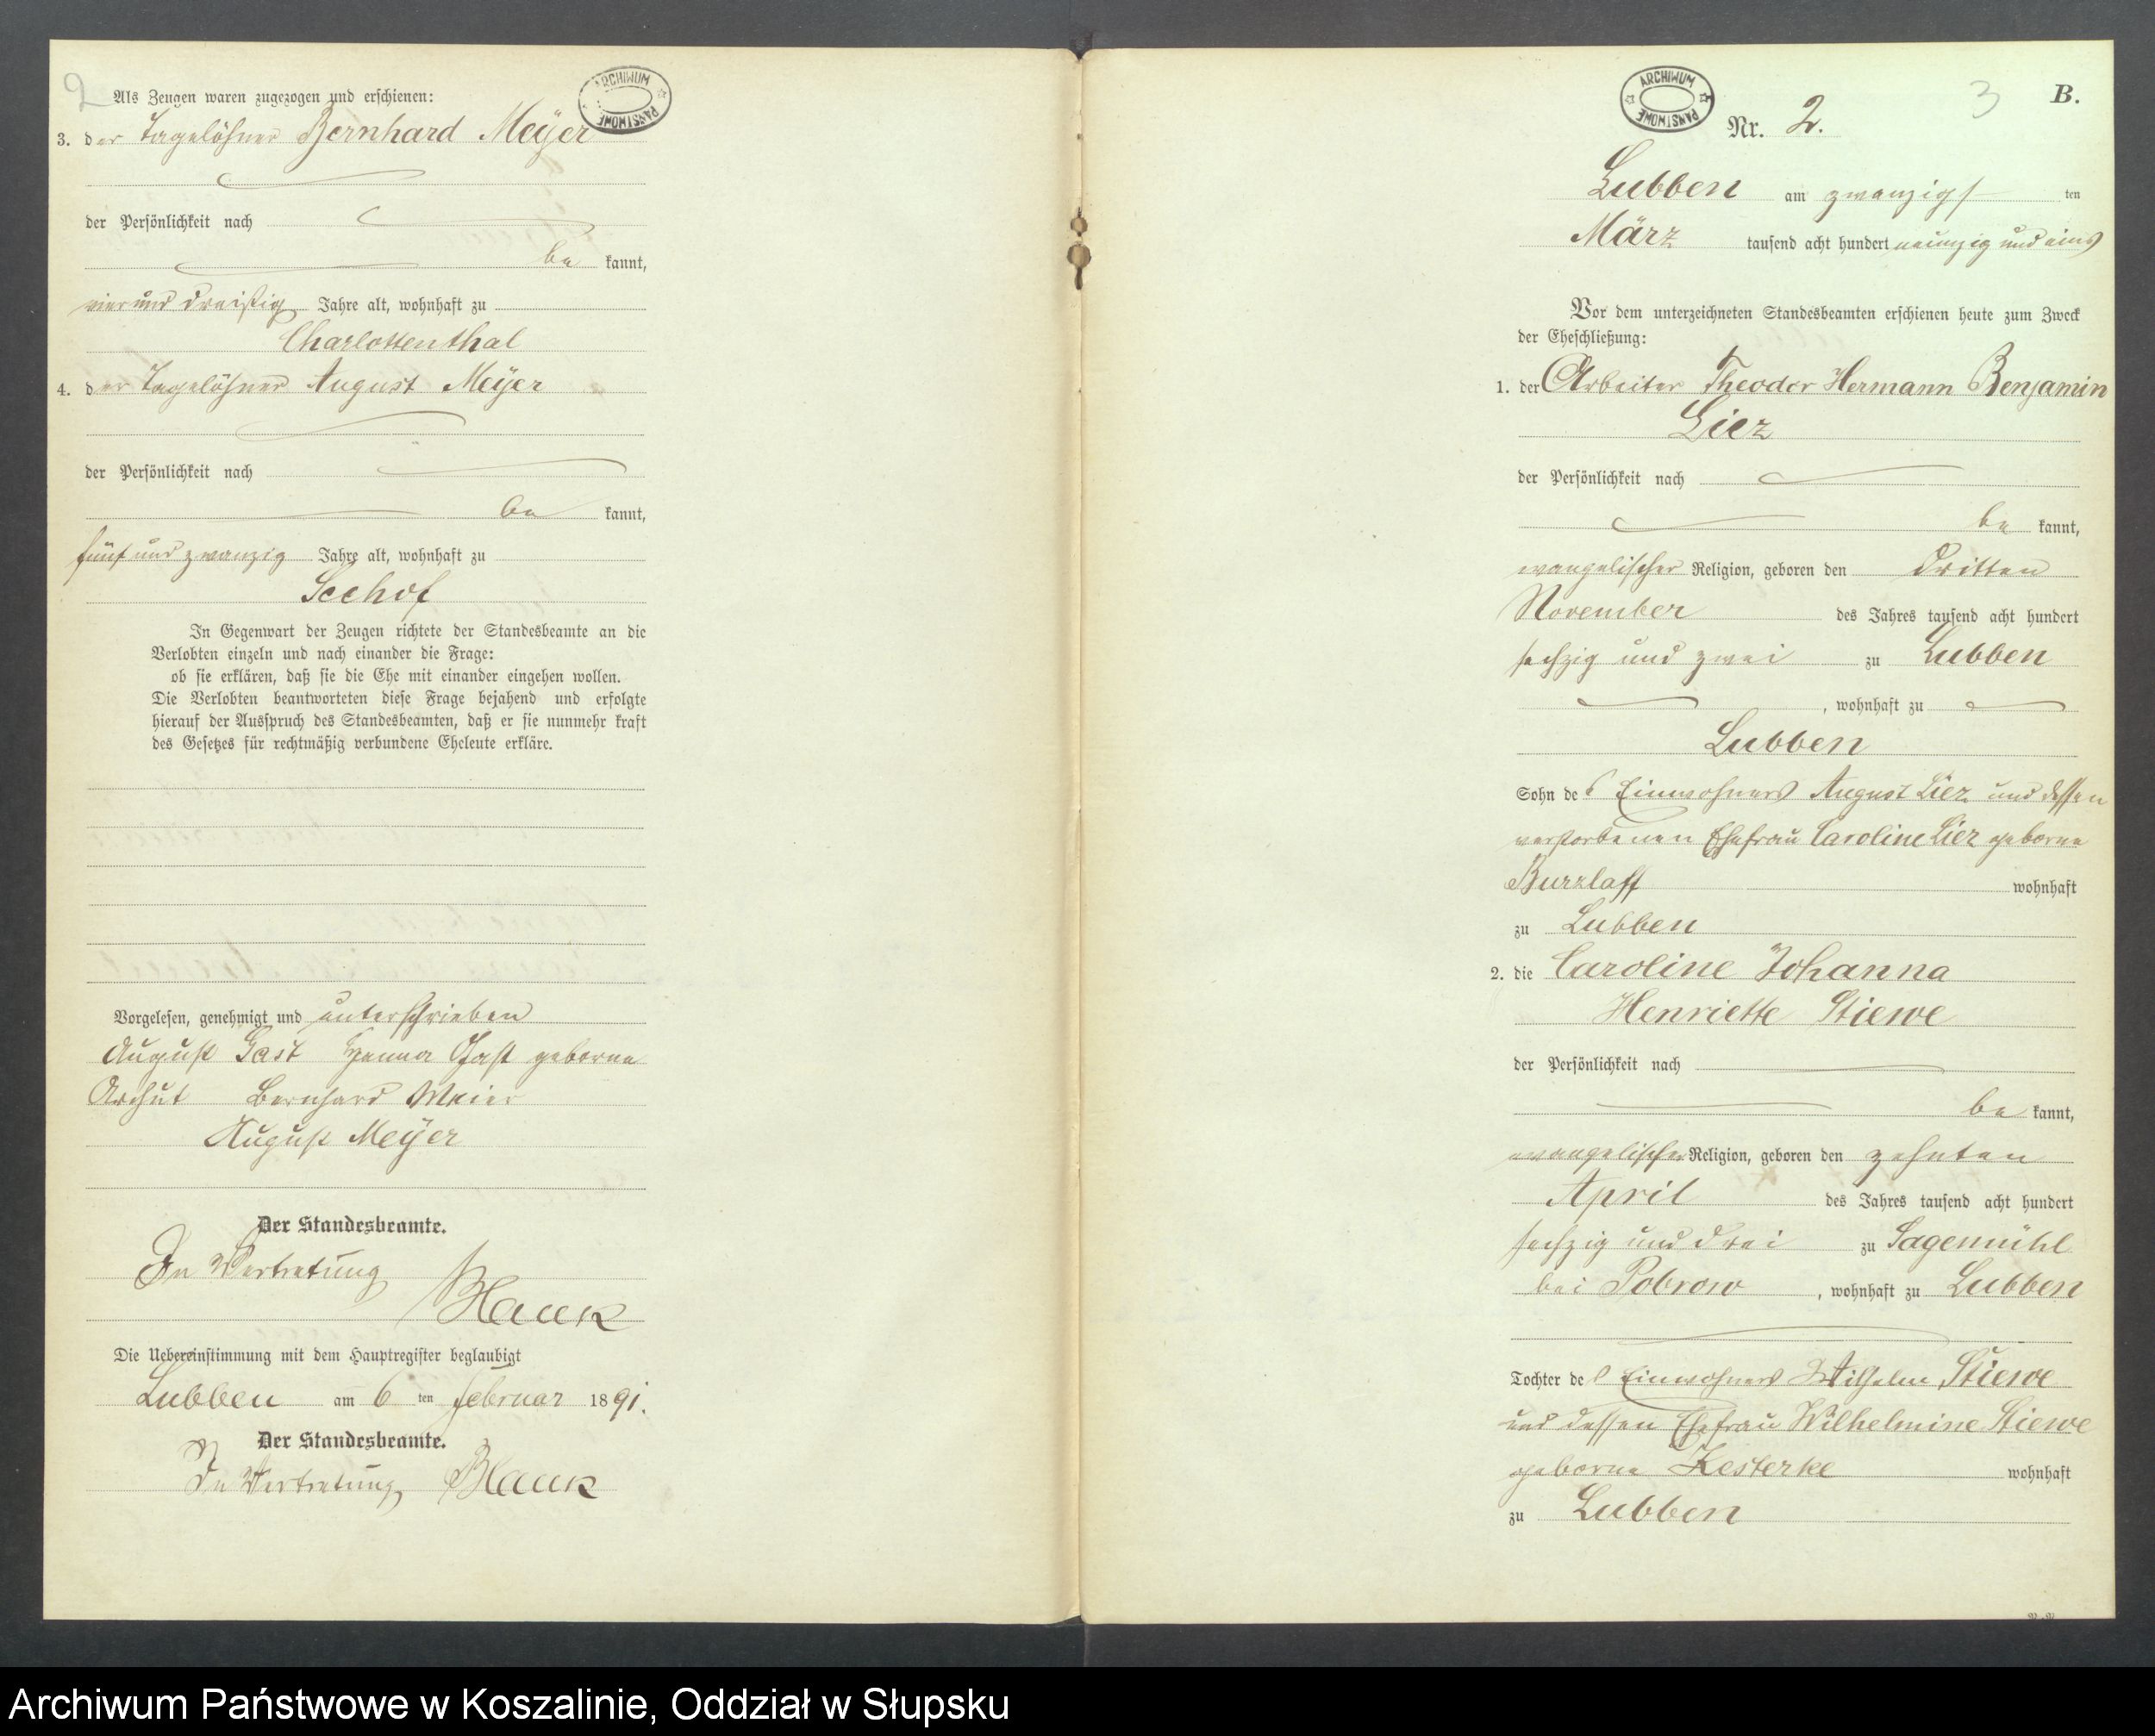 2
Als Zeugen waren zugezogen und erschienen:
ARCHIWUM PAŃSTWOWE
3. der Tagelöhner Bernhard Meÿer
der Persönlichkeit nach
be kannt,
vier und dreißig Jahre alt, wohnhaft zu
Charlottenthal
4. der Tagelöhner August Meÿer
der Persönlichkeit nach
be kannt,
fünf und zwanzig Jahre alt, wohnhaft zu
Seehof
In Gegenwart der Zeugen richtete der Standesbeamte an die
Verlobten einzeln und nach einander die Frage:
ob sie erklären, daß sie die Ehe mit einander eingehen wollen.
Die Verlobten beantworteten diese Frage bejahend und erfolgte
hierauf der Ausspruch des Standesbeamten, daß er sie nunmehr kraft
des Gesetzes für rechtmäßig verbundene Eheleute erkläre.
Vorgelesen, genehmigt und unterschrieben
August Gast Hanna Gast geborne
Archut Bernhard Meier
August Meÿer
Der Standesbeamte.
In Vertretung
Hauk
Die Uebereinstimmung mit dem Hauptregister beglaubigt
Lubben am 6 ten Februar 1891.
Der Standesbeamte.
In Vertretung
B.
3
ARCHIWUM PAŃSTWOWE
Nr. 2.
Lubben am zwanzigs ten
März tausend acht hundert neunzig und eins
Vor dem unterzeichneten Standesbeamten erschienen heute zum Zweck
der Eheschließung:
1. der Arbeiter Theodor Hermann Benjamin
Liez
der Persönlichkeit nach
be kannt,
evangelischer Religion, geboren den dritten
November des Jahres tausend acht hundert
sechzig und zwei zu Lubben
, wohnhaft zu
Lubben
Sohn des Einwohners August Liez und dessen
verstorbenen Ehefrau Caroline Liez geborne
Burzlaff wohnhaft
zu Lubben
2. die Caroline Johanna
Henriette Stiewe
der Persönlichkeit nach
be kannt,
evangelischer Religion, geboren den zehnten
April des Jahres tausend acht hundert
sechzig und drei zu Sagemühl
bei Pobrow , wohnhaft zu Lubben
Tochter des Einwohners Wilhelm Stiewe
und dessen Ehefrau Wilhelmine Stiewe
geborne Kesterke wohnhaft
zu Lubben
Archiwum Państwowe w Koszalinie, Oddział w Słupsku